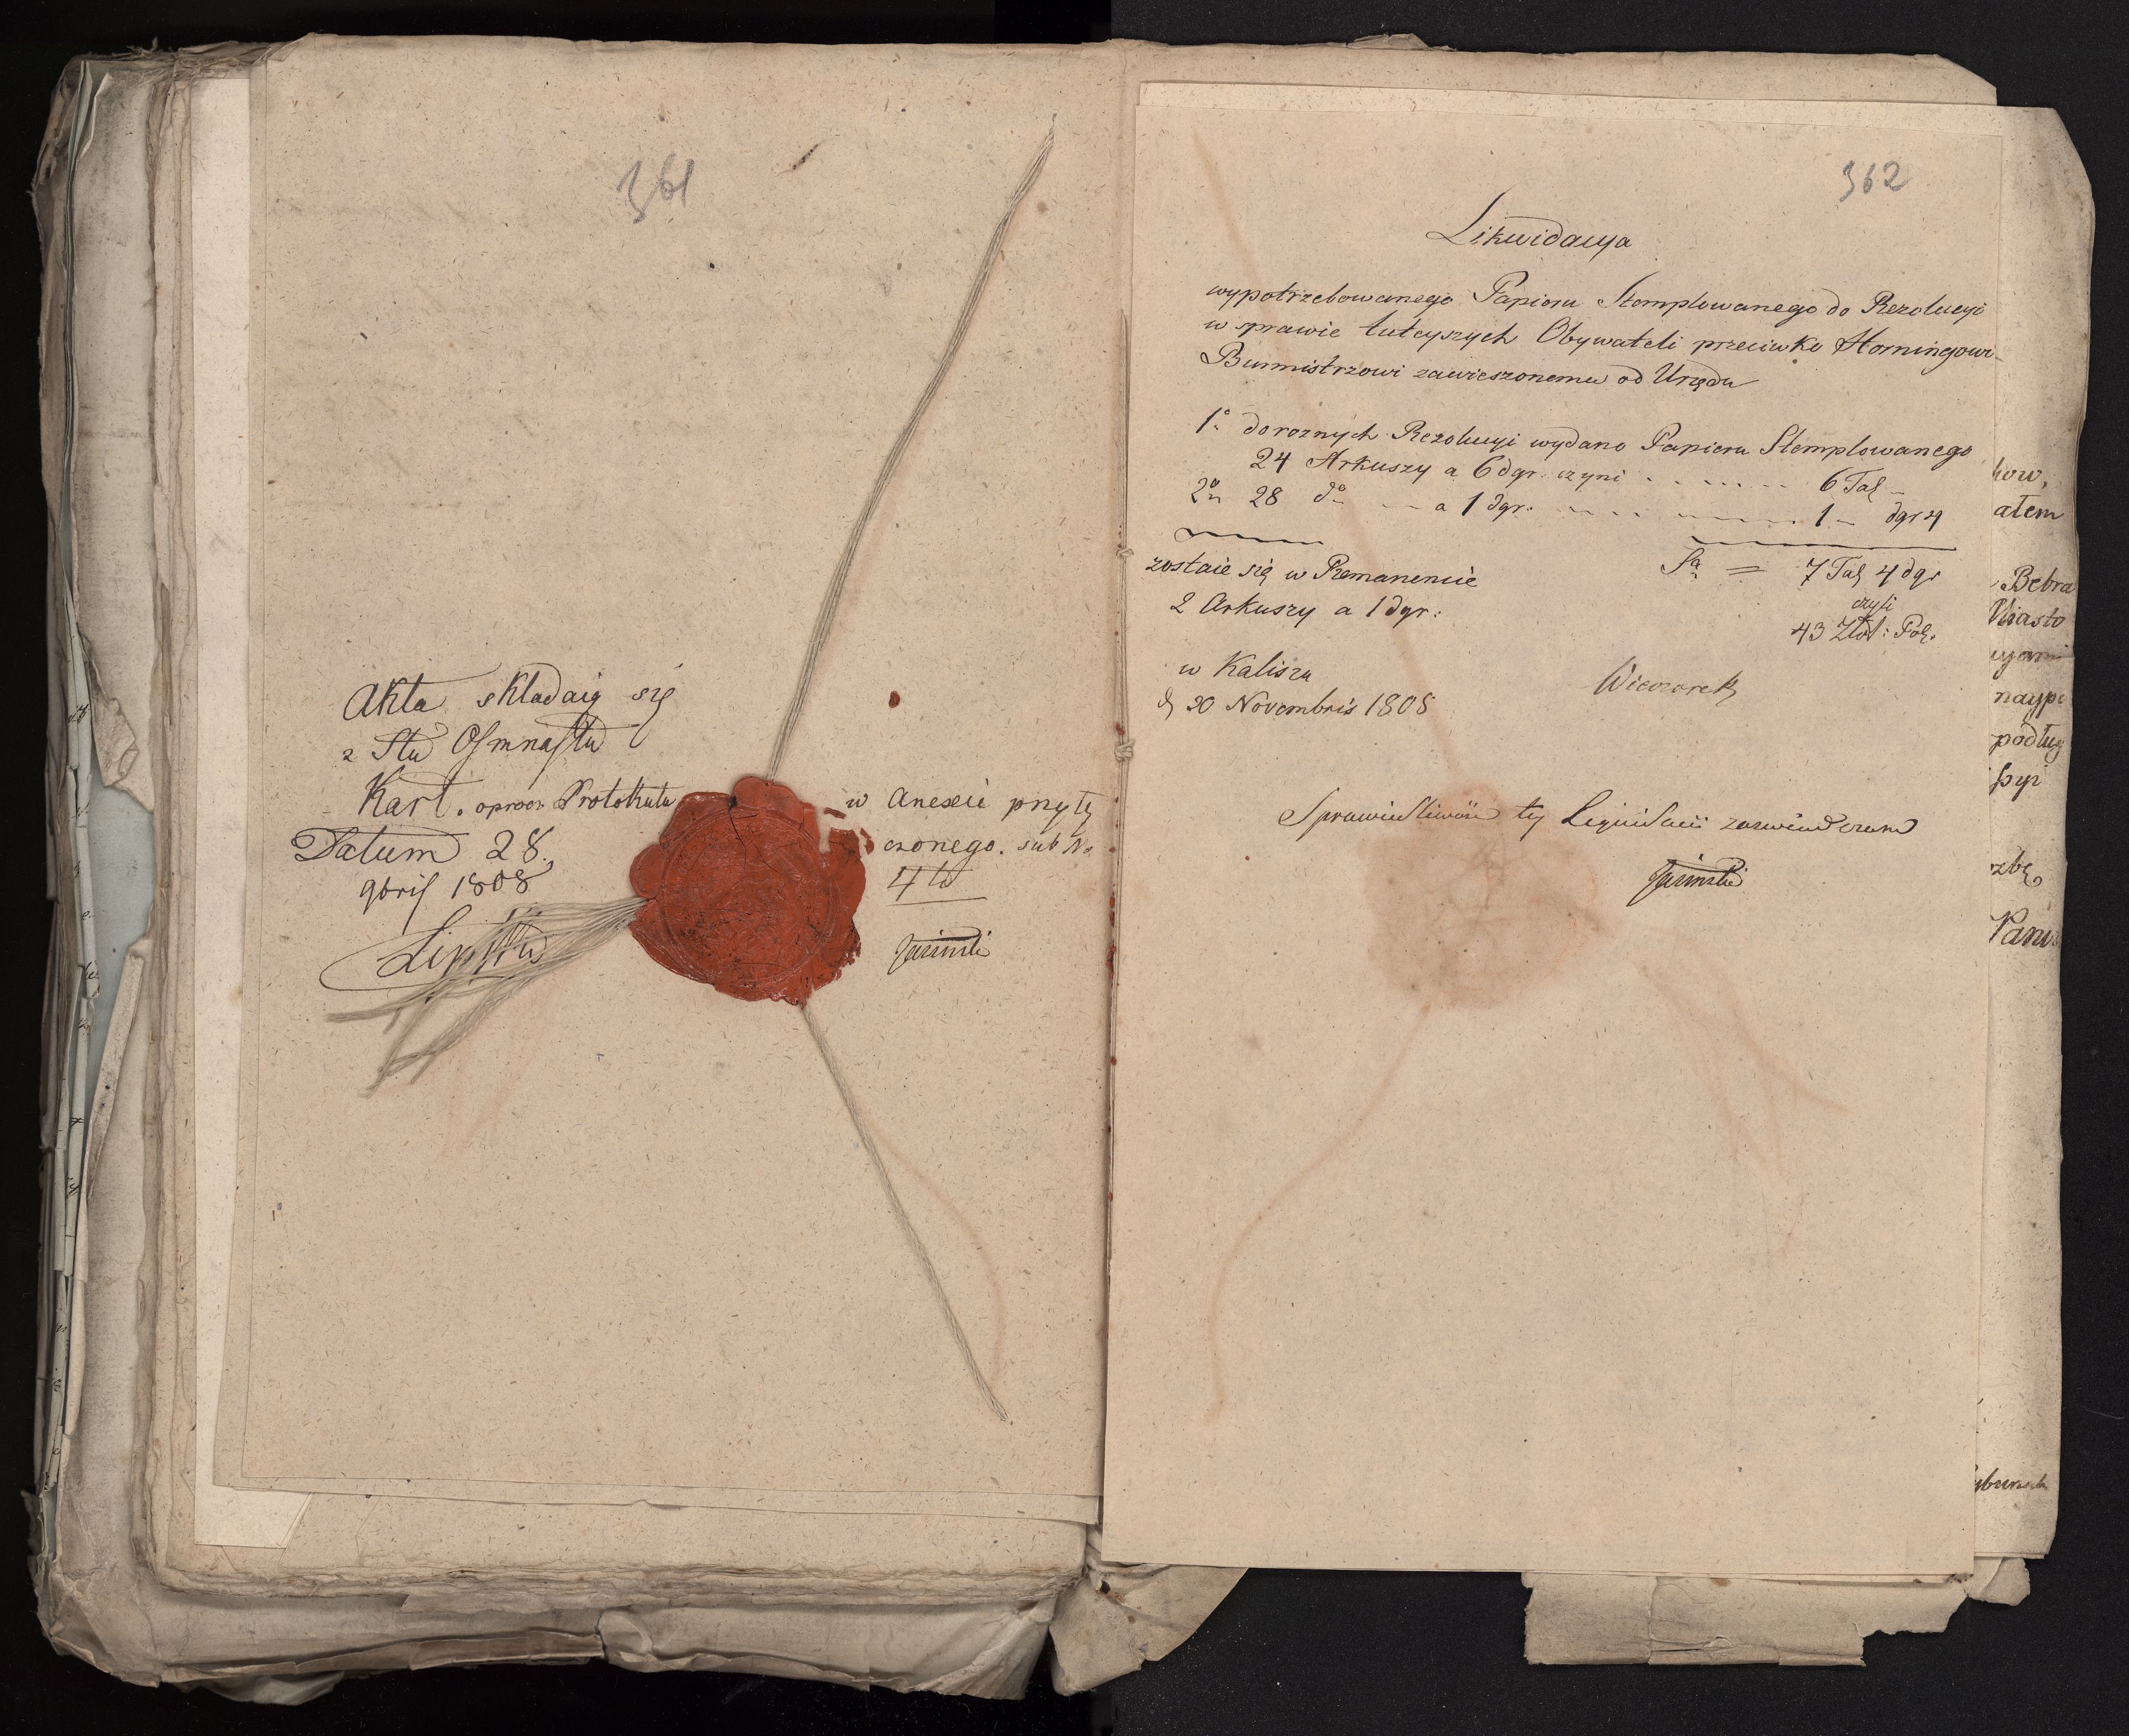 361
Akta składaią się
z Stu Osmnastu
Kart. oprocz Protokułu w Anexie przyłą
czonego. sub No
4to
Datum 28.
9bris 1808
362
Likwidacya
wypotrzebowanego Papieru Stemplowanego do Rezolucyi
w sprawie tuteyszych Obywateli przeciwko Horningowi
Burmistrzowi zawieszonemu od Urzędu
1o do roznych Rezolucyi wydano Papieru Stemplowanego
24 Arkuszy a 6 dgr. czyni . . . . . . . 6 Tal
2o 28 do — a 1 dgr. . . . . . . 1 — dgr 4
Sa = 7 Tal 4 dgr
czyli
43 Złot: Pol.
zostaie się w Remanencie
2 Arkuszy a 1 dgr:
w Kaliszu
d 20 Novembris 1808
Wieczorek
Sprawiedliwość tey Liquidacii zaswiadczam
how,
atem
Bebra
Miasto
naype
podług
rzbę